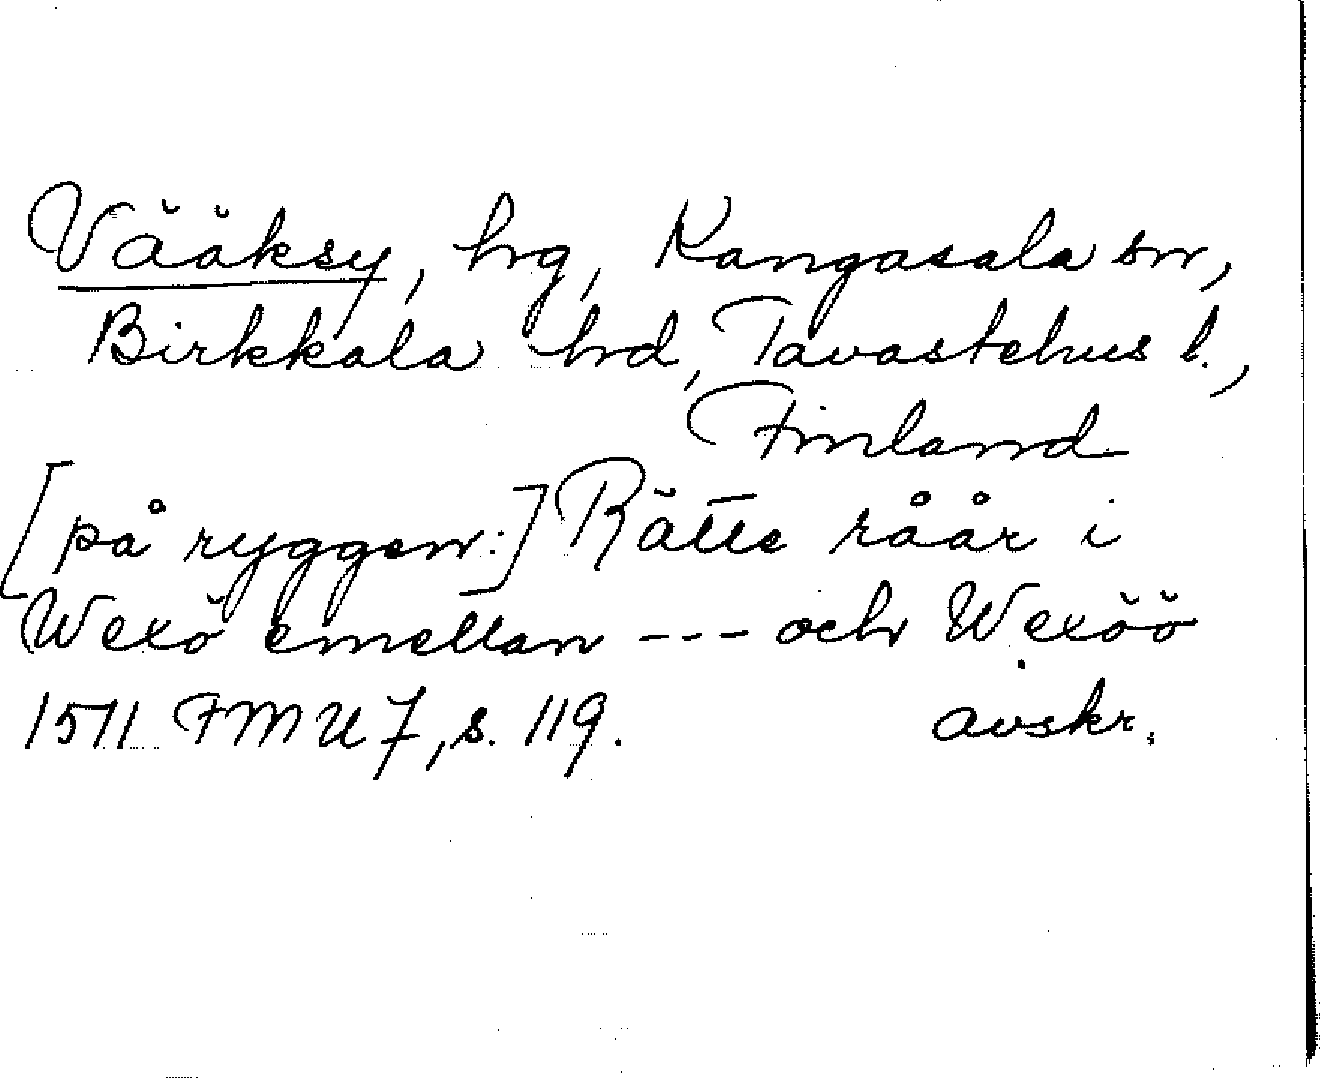 Vääksy, hg, Kangasala sn,
Birkkala hd, Tavastehus l.,
Finland
[på ryggen:] Rätte råår i
Wexö emellan --- och Wexöö
1511 FMU 7, s. 119. avskr.